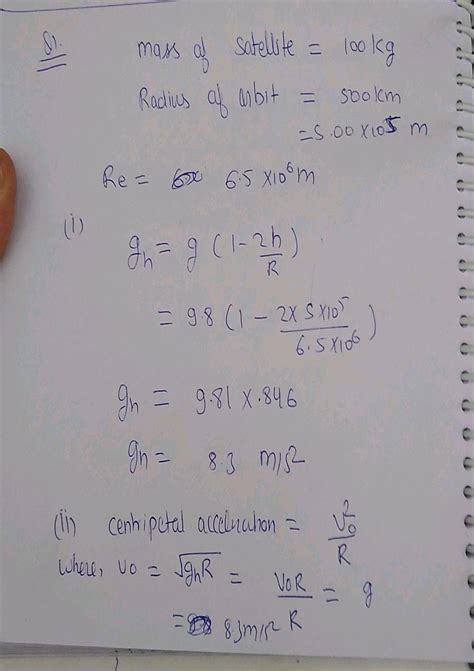 Q1. mass of satellite = 100kg
Radius of orbit = 500km
= 5.00 × 10^5 m
Re = 6.5 ×10^6 m
(i) gh = g (1 - 2h/R)
= 9.8 (1 - 2×5×10^5/6.5×10^6)
gh = 9.81 × .846
gh = 8.3 m/s^2
(ii) centripetal acceleration = Vo^2/R
where, vo = √ghR = VoR/R = g
= 8.3m/s^2
R